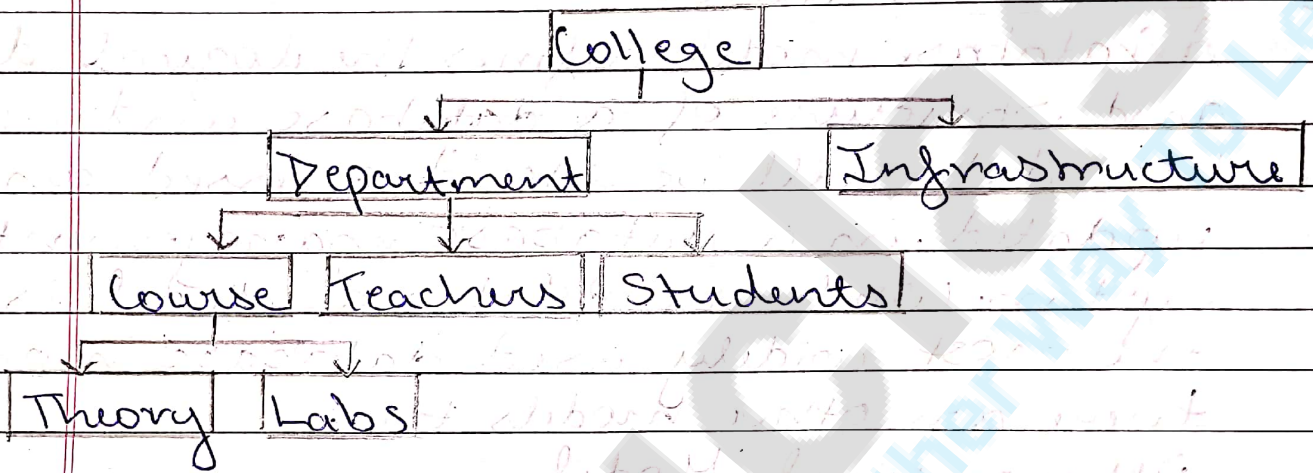 College
Department Infrastructure
Course Teachers Students
Theory Labs